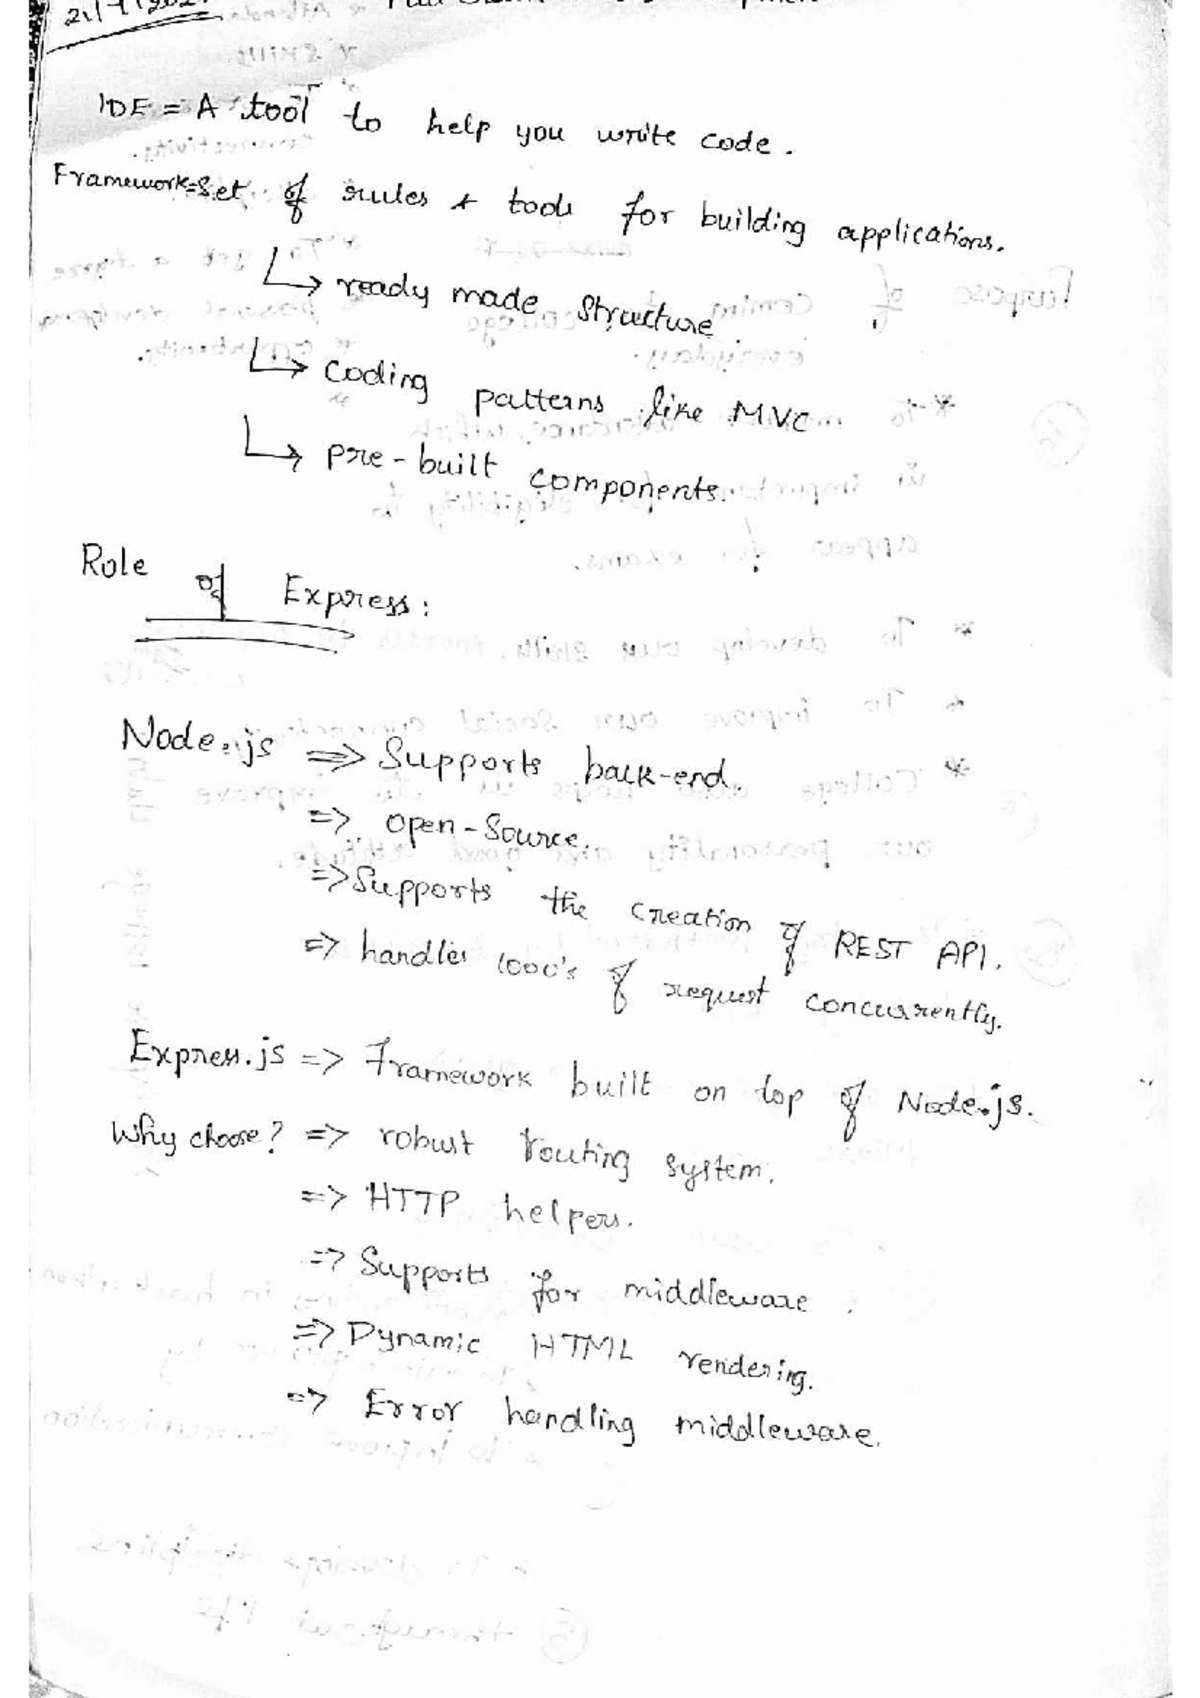 IDE = A tool to help you write code.
Framework = Set of rules + tools for building applications.
↳ ready made structure
↳ Coding patterns like MVC
↳ pre-built components.
Role of Express:
Node.js => Supports back-end.
=> open-Source.
=> Supports the creation of REST API.
=> handles 1000's of request concurrently.
Express.js => Framework built on top of Node.js.
Why choose? => robust routing system.
=> HTTP helpers.
=> Supports for middleware.
=> Dynamic HTML rendering.
=> Error handling middleware.